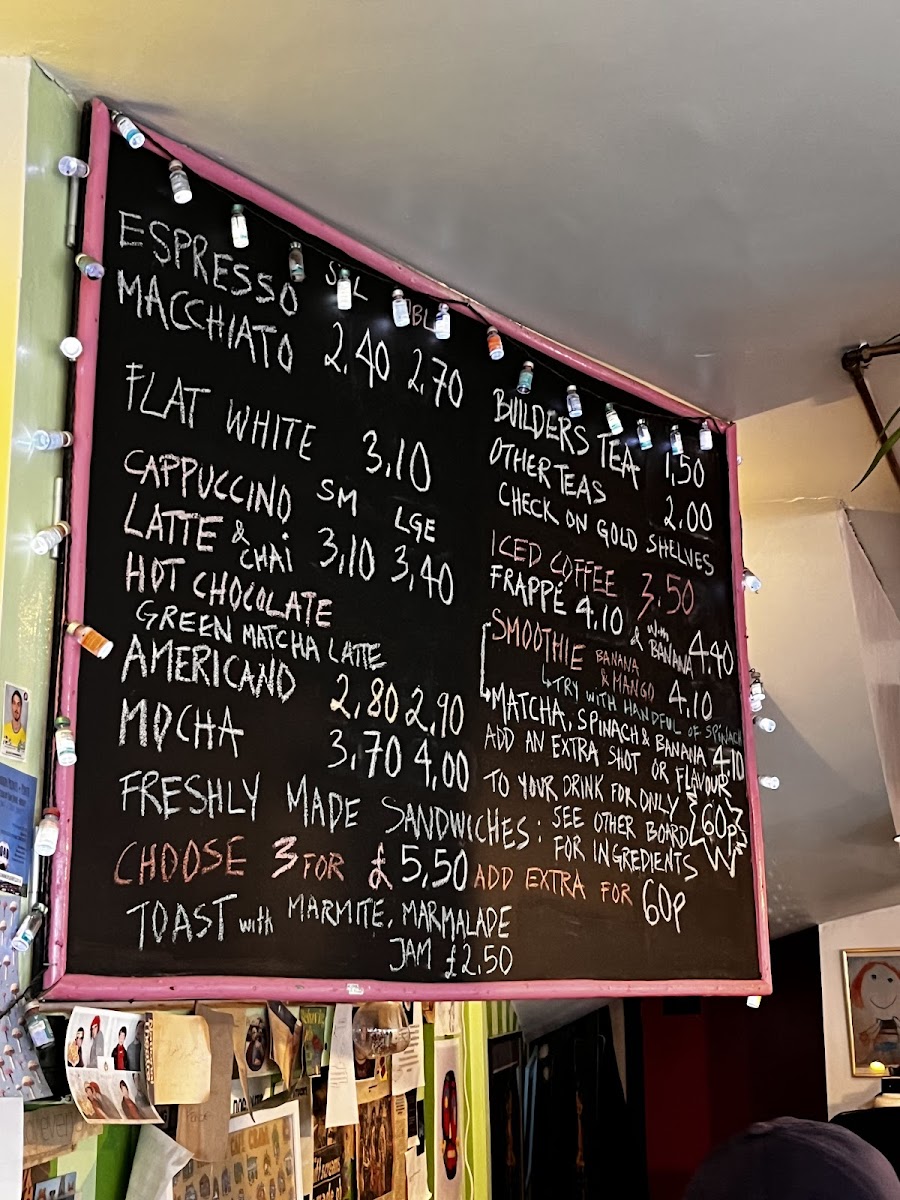 ESPRESSO
MACCHIATO 2.40 2.70
FLAT WHITE 3.10
CAPPUCCINO SM LGE
LATTE & CHAi 3.10 3.40
HOT CHOCOLATE
GREEN MATCHA LATTE
AMERICANO 2.80 2.90
MOCHA 3.70 4.00
FRESHLY MADE SANDWICHES: SEE OTHER BOARD
FOR INGREDIENTS
CHOOSE 3 FOR £5.50 ADD EXTRA FOR 60p
TOAST with MARMITE, MARMALADE
JAM £2.50
BUILDERS TEA 1.50
OTHER TEAS 2.00
CHECK ON GOLD SHELVES
ICED COFFEE 3.50
FRAPPÉ 4.10 & With BANANA 4.40
SMOOTHIE BANANA & MANGO 4.10
TRY WITH HANDFUL OF SPINACH
MATCHA, SPINACH & BANANA 4.10
ADD AN EXTRA SHOT OR FLAVOUR
TO YOUR DRINK FOR ONLY 60p